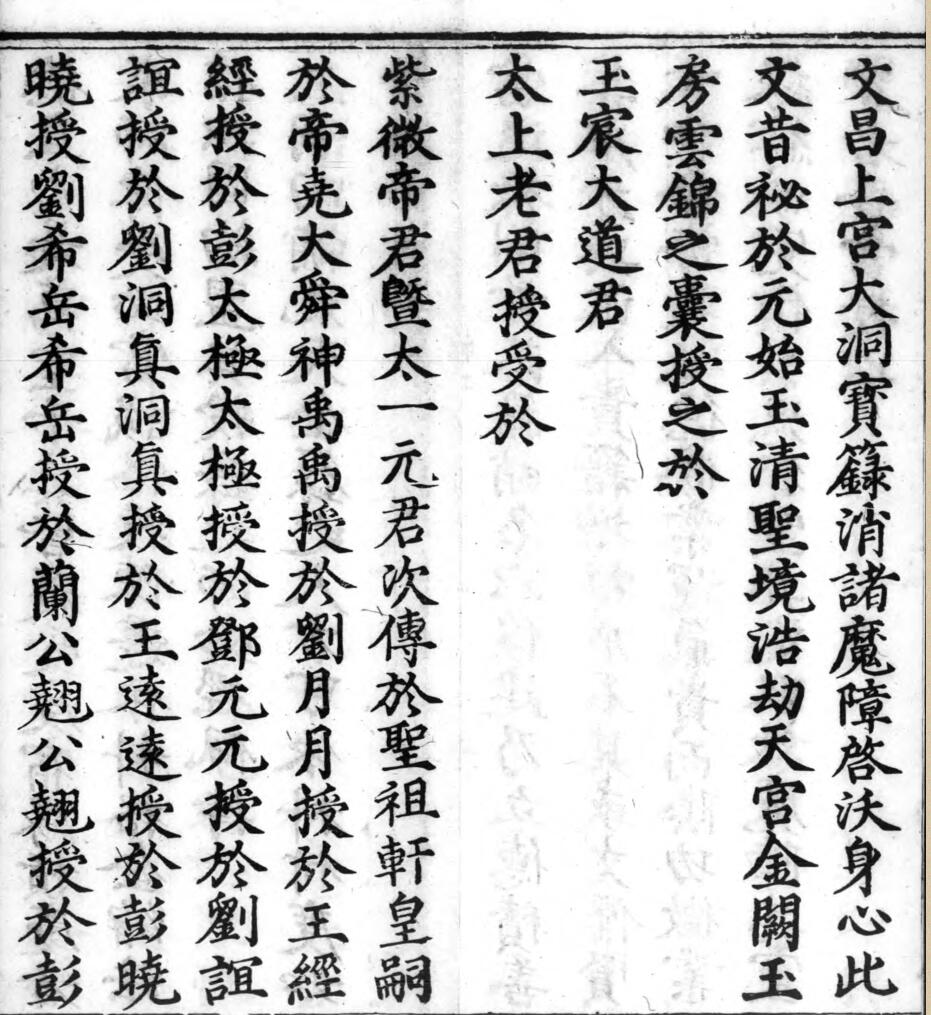 文昌上宮大洞寶籙消諸魔障啓沃身心此
文昔祕於元始玉清聖境浩劫天宮金闕玉
房雲錦之囊授之於
玉宸大道君
太上老君授受於
紫微帝君暨太一元君次傳於聖祖軒皇嗣
於帝堯大舜神禹禹授於劉月月授於王經
經授於彭太極太極授於鄧元元授於劉誼
誼授於劉洞真洞真授於王遠遠授於彭曉
曉授劉希岳希岳授於蘭公翹公翹授於彭